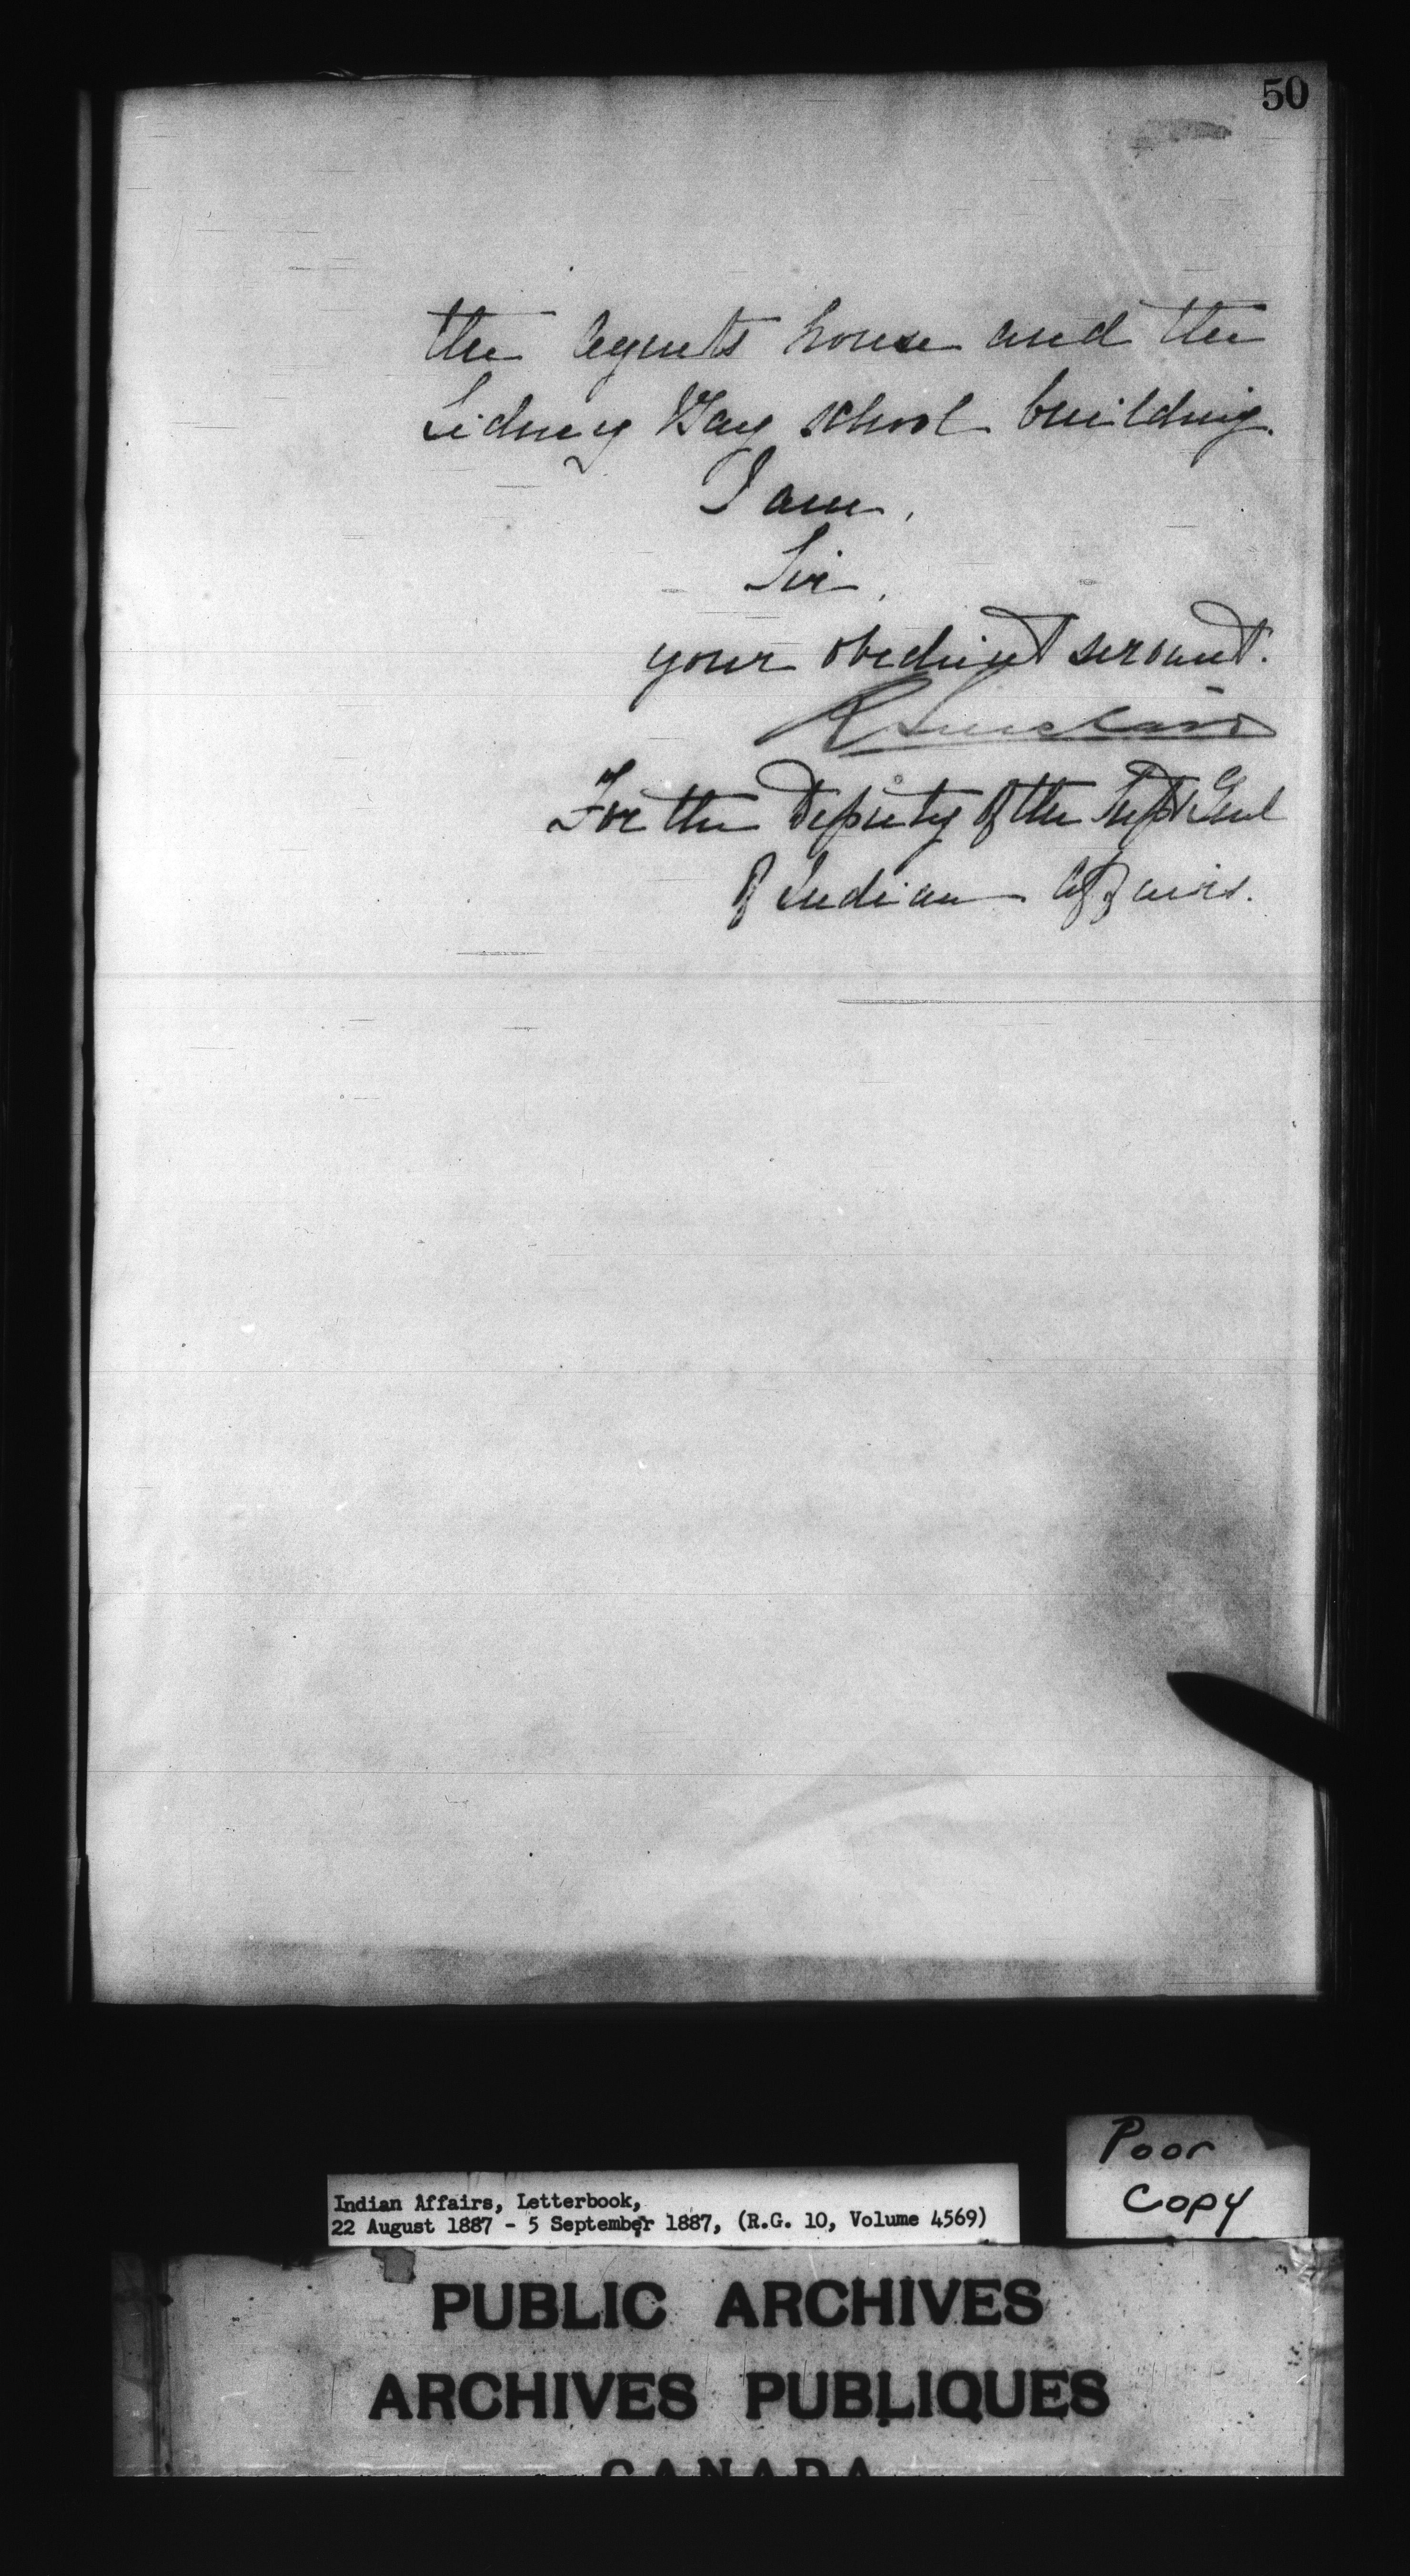 50
the Agents house and the
Sidney Bay school building.
I am,
Sir,
your obedient servant.
R Sinclair
For the Deputy of the Supt Genl
of Indian Affairs.
Poor
Copy
Indian Affairs, Letterbook,
22 August 1887 - 5 September 1887, (R.G. 10, Volume 4569)
PUBLIC ARCHIVES
ARCHIVES PUBLIQUES
CANADA